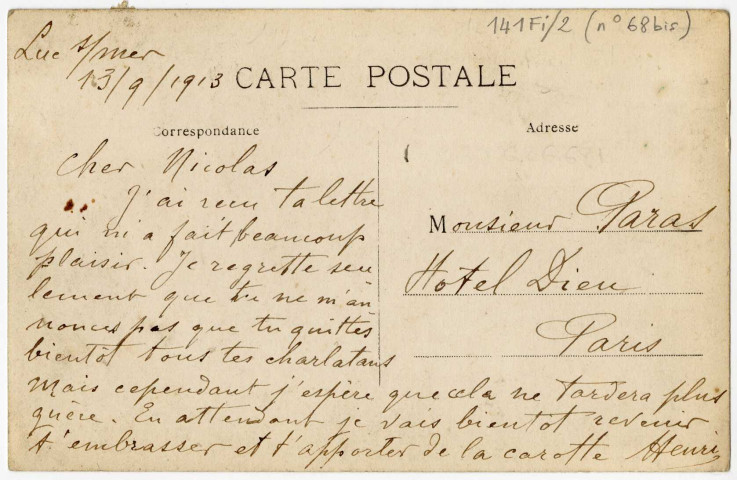 141Fi/2 (n° 68bis)
Luc s/mer
13/9/1913
CARTE POSTALE
Correspondance
Adresse
Cher Nicolas
J'ai recu ta lettre
qui m'a fait beaucoup
plaisir. Je regrette seu
lement que tu ne m'an
nonces pas que tu quittes
bientôt tous tes charlatans
mais cependant j'espère que cela ne tardera plus
guère. En attendant je vais bientôt revenir
t'embrasser et t'apporter de la carotte Henri
Monsieur Paras
Hotel Dieu
Paris